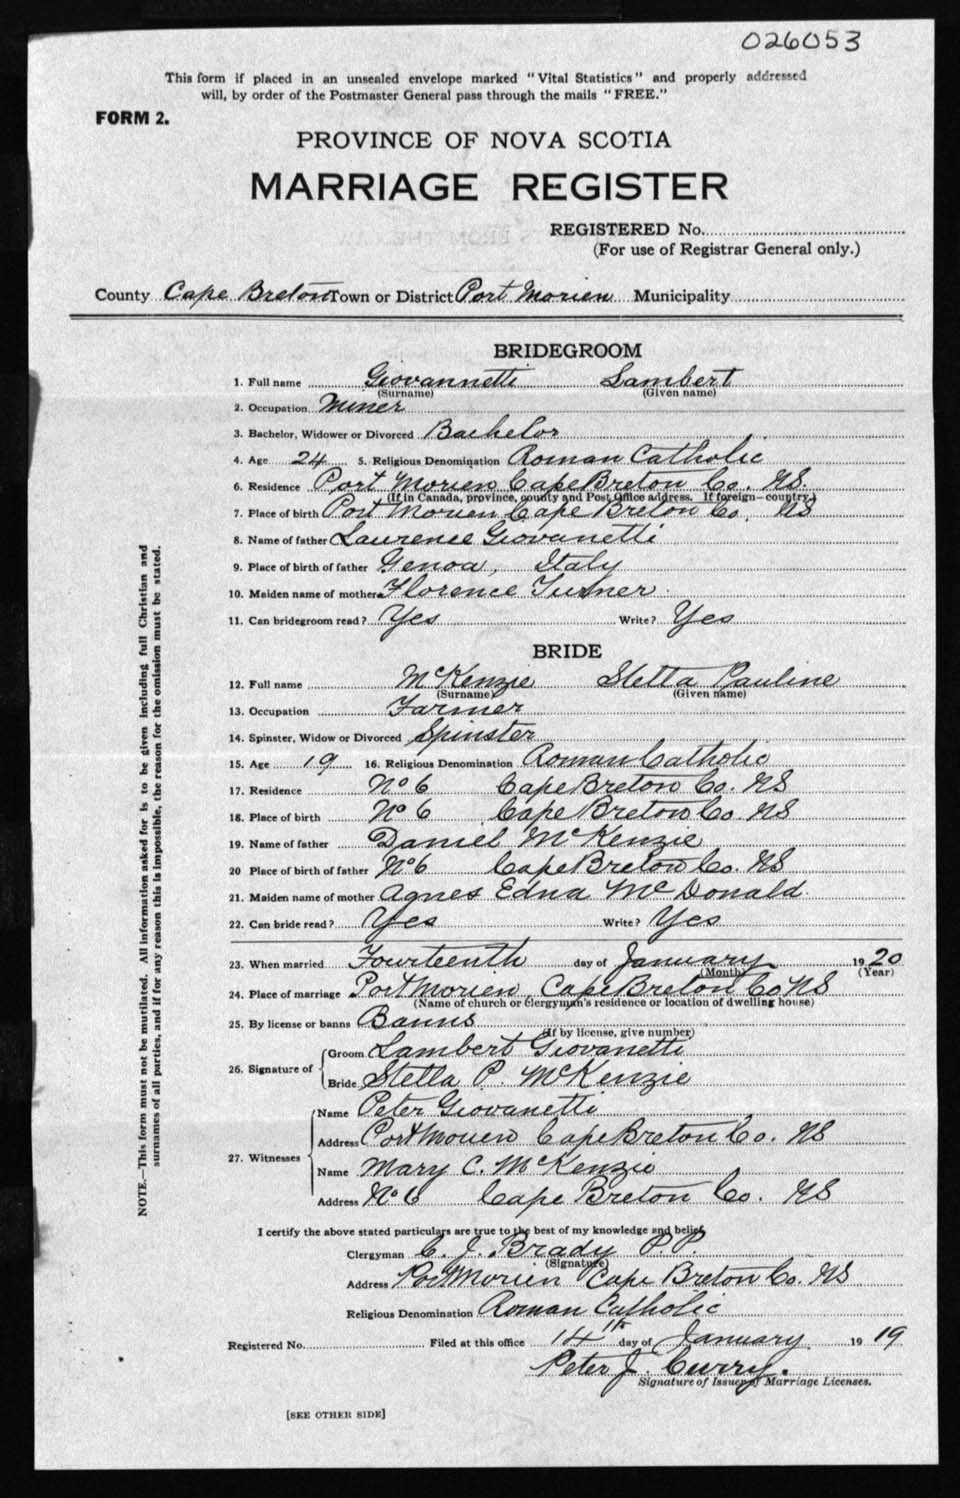 026053
This form if placed in an unsealed envelope marked "Vital Statistics" and properly addressed
will, by order of the Postmaster General pass through the mails "FREE."
FORM 2.
PROVINCE OF NOVA SCOTIA
MARRIAGE REGISTER
REGISTERED No.
(For use of Registrar General only.)
County Cape Breton Town or District Port Morien Municipality
BRIDEGROOM
1. Full name Giovannetti Lambert
(Surname) (Given name)
2. Occupation Miner
3. Bachelor, Widower or Divorced Bachelor
4. Age 24 5. Religious Denomination Roman Catholic
6. Residence Port Morien Cape Breton Co. NS.
(If in Canada, province, county and Post Office address. If foreign—country.)
7. Place of birth Port Morien Cape Breton Co. NS
8. Name of father Laurence Giovanetti
9. Place of birth of father Genoa, Italy
10. Maiden name of mother Florence Turner
11. Can bridegroom read? Yes Write? Yes
BRIDE
12. Full name McKenzie Stella Pauline
(Surname) (Given name)
13. Occupation Farmer
14. Spinster, Widow or Divorced Spinster
15. Age 19 16. Religious Denomination Roman Catholic
17. Residence No 6 Cape Breton Co. NS
18. Place of birth No 6 Cape Breton Co. NS
19. Name of father Daniel McKenzie
20 Place of birth of father No 6 Cape Breton Co. NS
21. Maiden name of mother Agnes Edna McDonald
22. Can bride read? Yes Write? Yes
23. When married Fourteenth day of January 1920
(Month) (Year)
24. Place of marriage Port Morien, Cape Breton Co NS
(Name of church or clergyman's residence or location of dwelling house)
25. By license or banns Banns
(If by license, give number)
26. Signature of
Groom Lambert Giovanetti
Bride Stella P. McKenzie
27. Witnesses
Name Peter Giovanetti
Address Port Morien Cape Breton Co. NS
Name Mary C. McKenzie
Address No 6 Cape Breton Co. NS
I certify the above stated particulars are true to the best of my knowledge and belief.
Clergyman C. J. Brady P.P.
(Signature)
Address Port Morien Cape Breton Co. NS
Religious Denomination Roman Catholic
Registered No. Filed at this office 14th day of January 1919
Peter J. Curry.
Signature of Issuer of Marriage Licenses.
[SEE OTHER SIDE]
NOTE.—This form must not be mutilated. All information asked for is to be given including full Christian and
surnames of all parties, and if for any reason this is impossible, the reason for the omission must be stated.